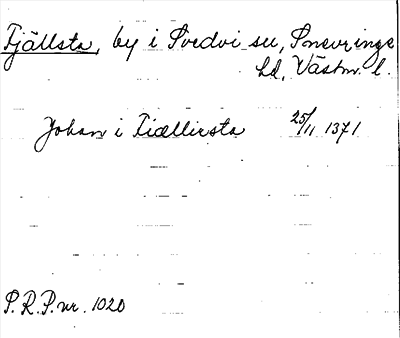 Fjällsta, by i Svedvi sn, Snevringe
hd, Västm. l.
Johan i Fiællirsta 25/11 1371
S.R.P. nr. 1020